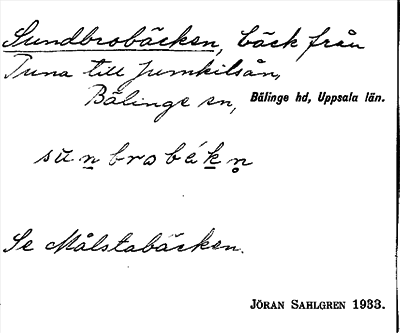 Sundbrobäcken, bäck från
Tuna till Jumkilsån,
Bälinge sn, Bälinge hd, Uppsala län.
sùn̲brobék̲n̥
Se Målstabäcken.
JÖRAN SAHLGREN 1933.